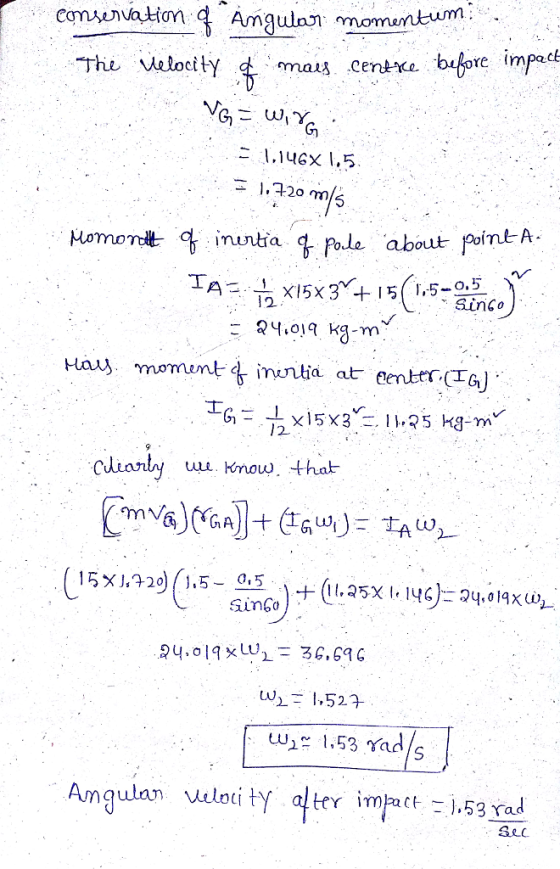 conservation of Angular momentum:
The velocity of mass centre before impact
VG = W1rG.
= 1.146x1.5
= 1.720 m/s
Momontt of inertia of pole about point A.
IA = 1/12 x15x3² + 15(1.5-0.5/Sin60)²
= 24.019 kg-m²
Mass moment of inertia at center.(IG).
IG = 1/12 x15x3² = 11.25 kg-m²
Clearly we know that
[(mVG)(rGA)] + (IGW1) = IAW2
(15x1.720)(1.5 - 0.5/Sin60) + (11.25x1.146) = 24.019xW2
24.019xW2 = 36.696
W2 = 1.527
W2 ≃ 1.53 rad/s
Angular velocity after impact = 1.53 rad/sec